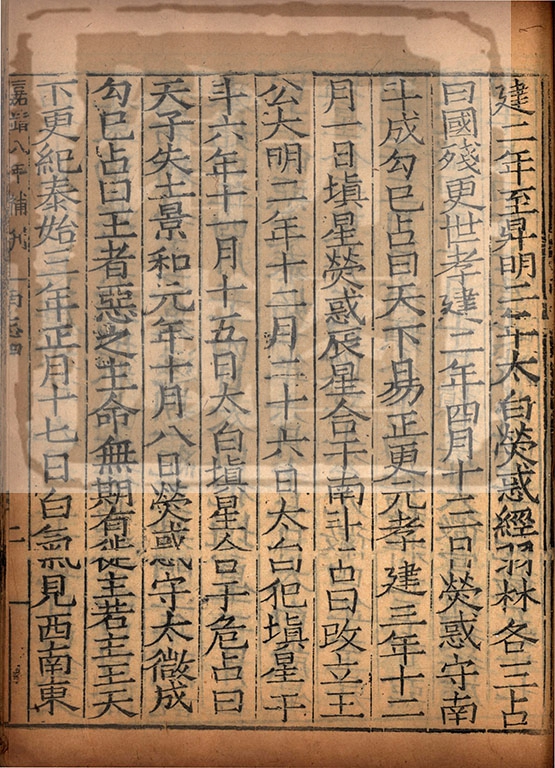 建二年至昇明三年太白熒惑經羽林各三占
曰國殘更世孝建二年四月十三日熒惑守南
斗成勾巳占曰天下易正更元孝建三年十二
月一日塡星熒惑辰星合于南斗占曰改立王
公大明二年十二月二十六日太白犯塡星于
斗六年十一月十五日太白塡星合于危占曰
天子失土景和元年十月八日熒惑守太微成
勾巳占曰王者惡之主命無期有徙主若主王天
下更紀泰始三年正月十七日白氣見西南東
嘉 八年補刊